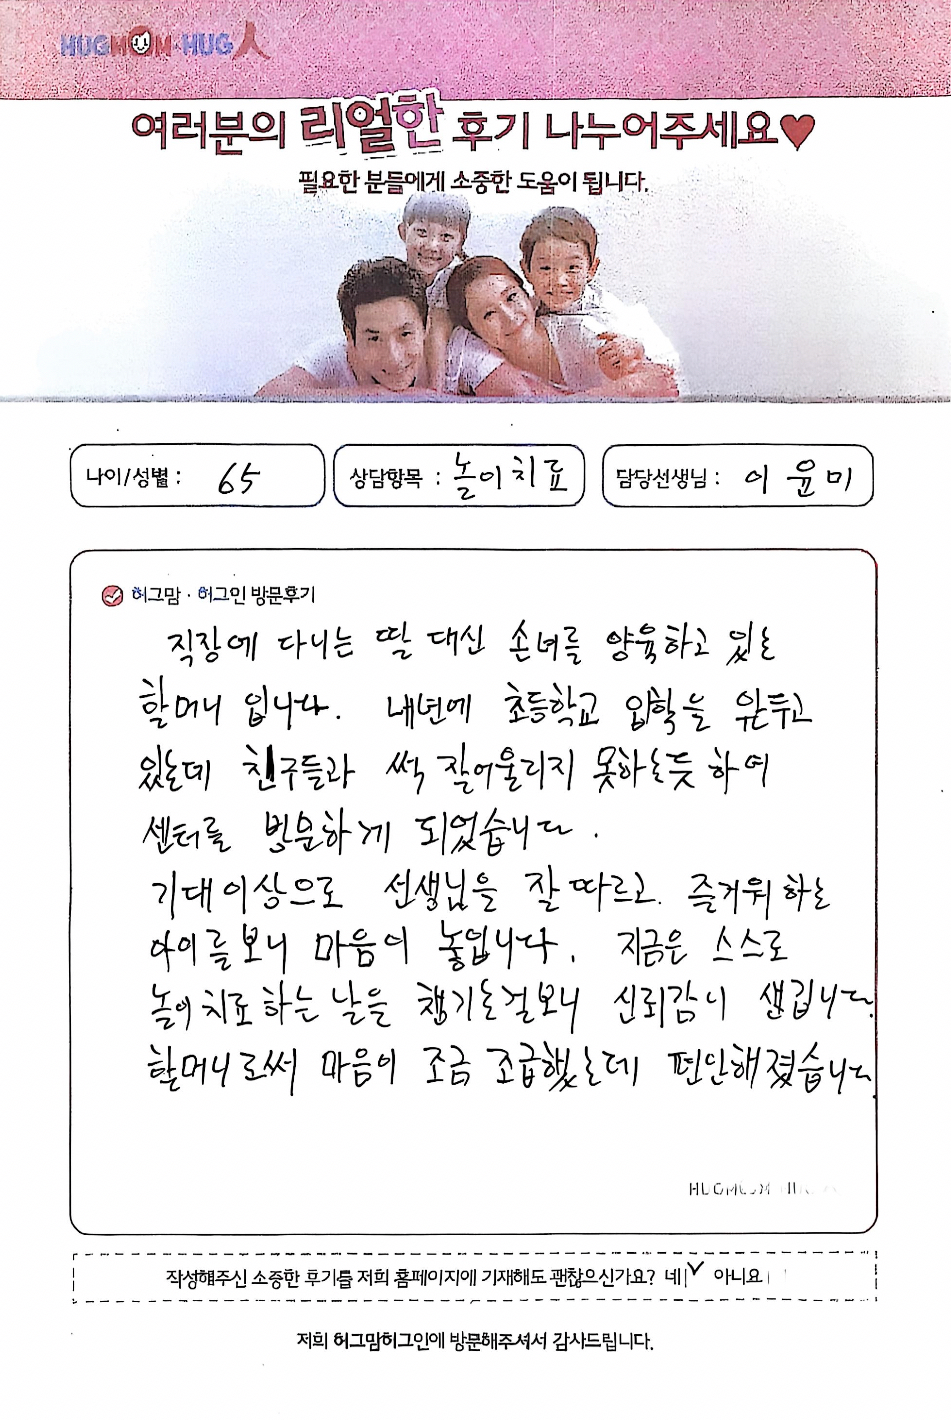 HUGMOM·HUG人
여러분의 리얼한 후기 나누어주세요♥
필요한 분들에게 소중한 도움이 됩니다.
나이/성별 : 65
상담항목 : 놀이치료
담당선생님 : 이윤미
허그맘 · 허그인 방문후기
직장에 다니는 딸 대신 손녀를 양육하고 있는
할머니 입니다. 내년에 초등학교 입학을 앞두고
있는데 친구들과 썩 잘어울리지 못하는듯 하여
센터를 방문하게 되었습니다.
기대이상으로 선생님을 잘 따르고 즐거워 하는
아이를보니 마음이 놓입니다. 지금은 스스로
놀이치료 하는 날을 챙기는걸보니 신뢰감이 생깁니다.
할머니로써 마음이 조금 조급했는데 편안해졌습니다.
HUGMOM HUG
작성해주신 소중한 후기를 저희 홈페이지에 기재해도 괜찮으신가요? 네 ✓ 아니요
저희 허그맘허그인에 방문해주셔서 감사드립니다.